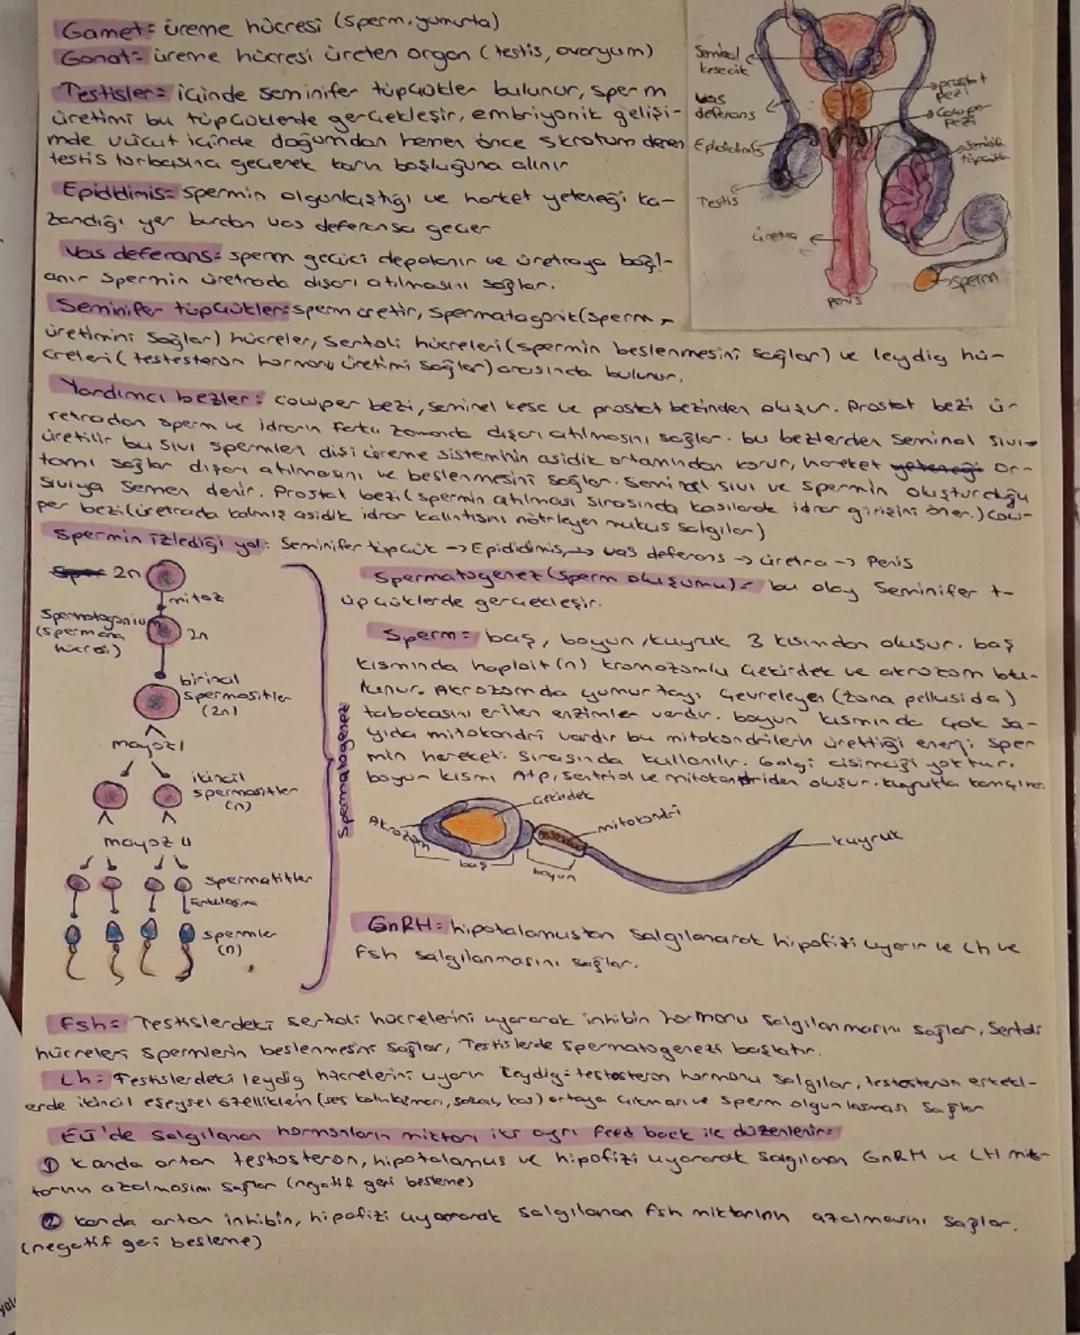 Gamet= üreme hücresi (sperm, yumurta)
Gonat= üreme hücresi üreten organ (testis, ovaryum)
Testisler= içinde seminifer tüpçükler bulunur, sperm
üretimi bu tüpçüklerde gerçekleşir, embriyonik gelişi-
mde vücut içinde doğumdan hemen önce skrotum denen
testis torbasına geçerek karın boşluğuna alınır
Epididimis= spermin olgunlaştığı ve hareket yeteneği ka-
zandığı yer burdan vas deferensa geçer
Vas deferans= sperm geçici depolanır ve üretraya bağl-
anır spermin üretrada dışarı atılmasını sağlar.
Seminifer tüpçükler= sperm üretir, spermatagonit (sperm
üretimini sağlar) hücreler, Sertoli hücreleri (spermin beslenmesini sağlar) ve leydig hü-
creleri (testesteron hormonu üretimi sağlar) arasında bulunur.
Yardımcı bezler: cowper bezi, seminel kese ve prostat bezinden oluşur. Prostat bezi ür-
retradan sperm ve idrarın farklı zamanda dışarı atılmasını sağlar. bu bezlerden seminal sıvı
üretilir bu sıvı spermleri dişi üreme sisteminin asidik ortamından korur, hareket yeteneği or-
tamı sağlar dışarı atılmasını ve beslenmesini sağlar. Seminal sıvı ve spermin oluşturduğu
sıvıya Semen denir. Prostat bezi (spermin atılması sırasında kasılarak idrar girişini öner.) Cow-
per bezi (üretrada kalmış asidik idrar kalıntısını nötrleyen mukus salgılar)
Spermin izlediği yol: Seminifer tüpçük -> Epididimis -> vas deferans -> üretra -> Penis
Seminal
kesecik
Vas
deferans
Epididimis
Testis
üretra
penis
prostat
bezi
Cowper
bezi
Seminifer
tüpçük
sperm
2n
mitoz
Spermatogonium
(sperm ana
hücresi)
2n
birincil
spermositler
(2n)
mayoz I
ikincil
spermositler
(n)
mayoz II
spermatitler
Farklılaşma
spermler
(n)
Spermatogenez
Spermatogenez (sperm oluşumu)= bu olay Seminifer t-
üpçüklerde gerçekleşir.
Sperm= baş, boyun, kuyruk 3 kısımdan oluşur. baş
kısmında haploit (n) kromozomlu çekirdek ve akrozom bu-
lunur. Akrozomda yumurtayı çevreleyen (zona pellusida)
tabakasını eriten enzimler vardır. boyun kısmında çok sa-
yıda mitokondri vardır bu mitokondrilerin ürettiği enerji sper
min hareketi sırasında kullanılır. Golgi cisimciği yoktur.
boyun kısmı Atp, sentriol ve mitokondriden oluşur. kuyrukta
Akrozom
Çekirdek
mitokondri
kuyruk
baş
boyun
GnRH= hipotalamustan salgılanarak hipofizi uyarır ve Lh ve
Fsh salgılanmasını sağlar.
Fsh= Testislerdeki sertoli hücrelerini uyararak inhibin hormonu salgılanmasını sağlar, Sertoli
hücreleri spermlerin beslenmesini sağlar, Testislerde spermatogenezi başlatır.
Lh= Testislerdeki leydig hücrelerini uyarır Leydig= testosteron hormonu salgılar, testosteron erkekl-
erde ikincil eşeysel özelliklerin (ses kalınlaşması, sakal, kas) ortaya çıkması ve sperm olgunlaşması sağlar
Eü'de salgılanan hormonların miktarı iki ayrı feed back ile düzenlenir=
① Kanda artan testosteron, hipotalamus ve hipofizi uyararak salgılanan GnRH ve LH mik-
tarının azalmasını sağlar (negatif geri besleme)
② kanda artan inhibin, hipofizi uyararak salgılanan Fsh miktarının azalmasını sağlar.
(negatif geri besleme)